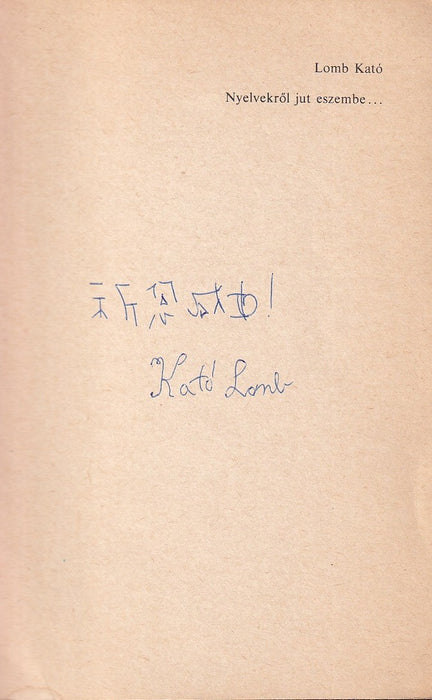 Lomb Kató
Nyelvekről jut eszembe...
Kató Lomb